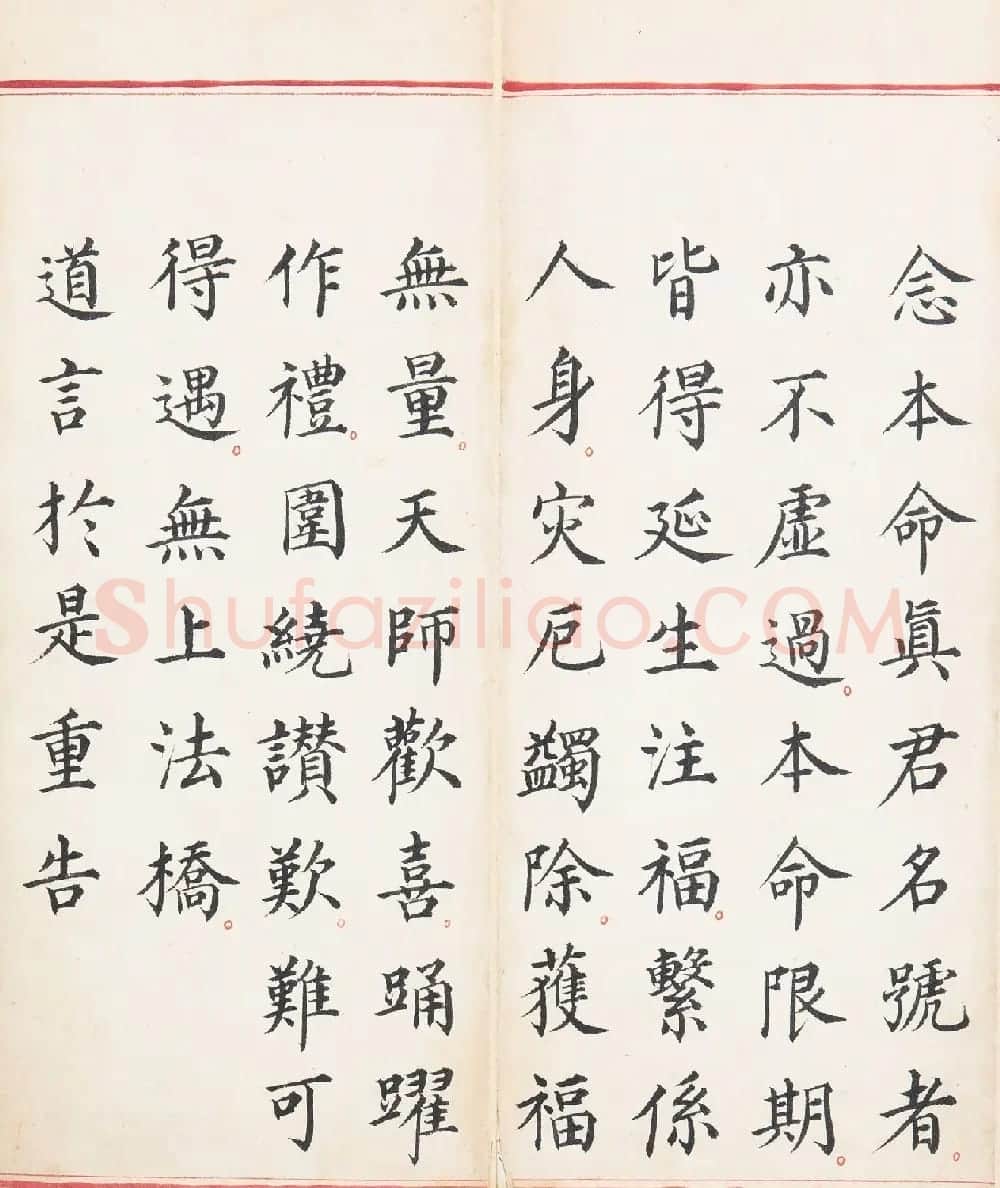 念本命眞君名號者。
亦不虛過。本命限期。
皆得延生注福。繫係
人身。灾厄蠲除。獲福
無量。天師歡喜。踊躍
作禮。圍繞讃歎。難可
得遇。無上法橋。
道言於是重告
Shufaziliao.COM